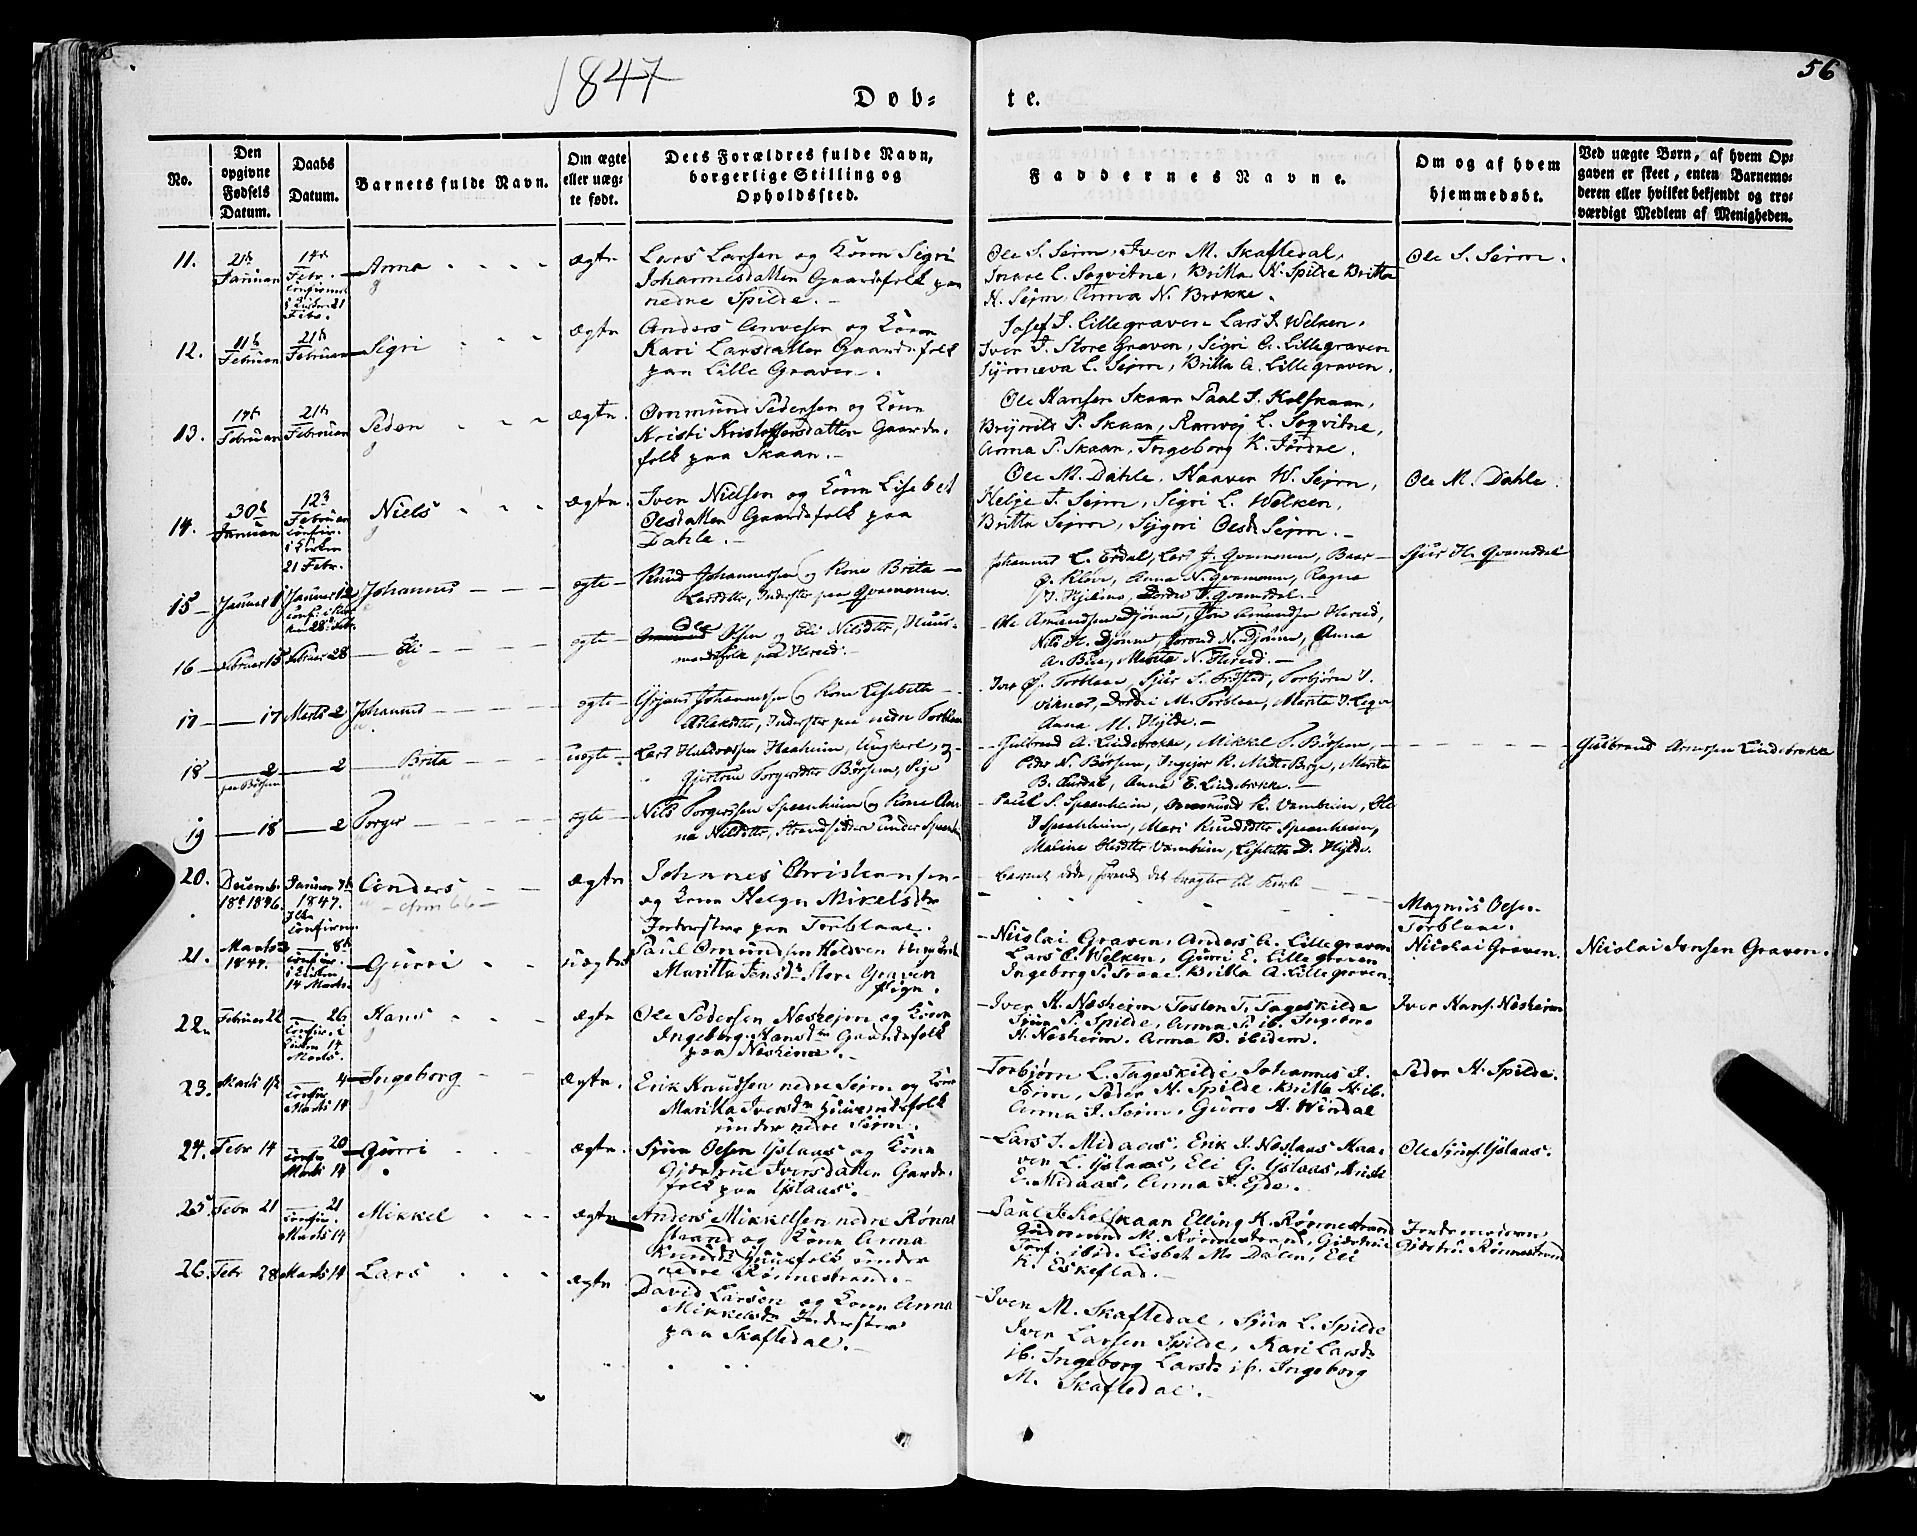 1847
56
Døb-
te.
No.
Den opgivne Fødsels Datum.
Daabs Datum.
Barnets fulde Navn.
Om ægte eller uæg- te født.
Dets Forældres fulde Navn, borgerlige Stilling og Opholdssted.
Faddernes Navne.
Om og af hvem hjemmedøbt.
Ved uægte Børn, af hvem Op- gaven er skeet, enten Barnemo- deren eller hvilket bekjendt og tro- værdigt Medlem af Menigheden.
11.
Januari
14de Febr.
21 Febr.
Anna
Ægte
Lars Larsen og Kone Sigri
Johannesdatter Gaardsfolk paa
nedre Spilde.
Ole S. Seim, Iver M. Skaftedal,
L. Søqvitne, Britta H. Spilde Britta
H. Sejm, Anna N. Brekke.
Ole S. Seim.
12.
11te Februari
21de Februari
Sigri
Ægte
Anders Anvesen og Kone
Kari Larsdatter Gaardsfolk
paa Lille Graven.
Josef J. Lillegraven Lars I. Welken,
Iver T. Store Graven, Sigri A. Lillegraven
L. Sejm, Britta A. Lillegraven.
13.
17de Februari
21de Februari
Peder
Ægte.
Ommund Pedersen og Kone
Kristi Kristoffersdatter Gaards-
folk paa Skaar.
Ole Hansen Skaar Paul J. Kolskaar,
P. Skaar, Ranvej L. Søqvitne,
Anna P. Skaar, Ingeborg K. Jørdre.
14.
30te Januari
12te Februari
21 Febr.
Niels
Ægte.
Iver Nielsen og Kone Lisebet
Olsdatter Gaardsfolk paa
Dahle.
Ole M. Dahle, Haaver W. Sejm,
Helje T. Sejm, Sigri L. Welken,
Britta Sejm, Olsd. Sejm.
Ole M. Dahle.
15
Januar
Januar 12
28de Febr.
Johannes
ægte
Knud Johannessen og Kone Brita
Larsdtter, Inderster paa Qvammen.
Johannes L. Erdal, Lars J. Qvammen,
Ø. Kløve, Anna N. Qvammen, Ragna
I. Hjeltnes, Dordei T. Qvamsdal.
Sjur H. Qvamsdal
16
Februar 15
Februar 28
Eli
ægte
Ole
Olsen og Eli Nilsdtter, Huus-
mandsfolk paa Hereid.
Ole Amundsen Djønne, Jon Amundsen Hereid,
Nils H. Djønne, N. Djønne, Anna
A. Bue, Marita N. Hereid.
17
17
Marts 2
Johannes
ægte
Johannessen og Kone Lisebeth
Aslaksdtter, Inderster paa nedre Torblaa.
Iver Ø. Torblaa, Sjur S. Trøstad, Torbjørn I.
Viknes, Dordei M. Torblaa, Marita I. Leqve
Anna M. Hylde.
18
2
paa Børsem
2
Brita
uægte
Lars Haldorssen Haaheim, Ungkarl, og
Gjertrue Torgersdtter Børsem, Pige
Gulbrand A. Lindebrekke, Mikkel P. Børsem,
Peder N. Børsem, Ingeqer R. Mitt Berge, Marita
B. Aurdal, Anna E. Lindebrekke.
Gulbrand Arnesen Lindebrekke
19
18
2
Torger
ægte
Nils Torgerssen Spaanheim og Kone An-
na Nilsdtter, Strandsidder under Spaanh.
Paul S. Spaanheim, Ommund K. Vambheim, Ole
I Spaanheim, Mari Knudsdtter Spaanheim,
Malene Olsdtter Vambheim, Lisbeth D. Hylde.
20.
Decemb. 18de 1846.
Januar 7de 1847.
Anders
Ægte
Johannes Christiansen
og Kone Helga Mikelsdtr
Inderster paa Torblaae.
barnet døde, førend det bragtes til Kirke
Magnus Olsen
Torblaae.
21.
Marts
1847.
8de
14 Marts.
Gurri
uægte
Paul Omundsen Haldven Ungkarl
Maritta Jensdr. Store Graven
Pige.
Nicolai Graven, Anders A. Lillegraven
Lars O. Welken, Gurri E. Lillegraven
Ingeborg P. Traae, Britta A. Lillegraven.
Nicolai Graven.
Nicolai Jensen Graven.
22.
Februar 22
26
14 Marts.
Hans
Ægte
Ole Pedersen Nesheim og Kone
Ingeborg Hansdtr Gaardsfolk
paa Nesheim.
Iver H. Nesheim Tosten T. Tageskilde
Sjur P. Spilde, Anna P. ib. Ingeborg
H. Nesheim. Anna B. ibidem.
Iver Hans. Nesheim
23.
Marts
4
Marts 14
Ingeborg
Ægte.
Erik Knutsen nedre Sejm og Kone
Maritta Iversdtr Huusmandsfolk
under nedre Sejm.
Torbjørn L. Tageskilde Johannes I.
Seim, Peder H. Spilde. Britta H. ib.
Anna I. Seim, Gurro H. Windal
Peder H. Spilde.
24.
Febr 14
20
Marts 14
Gurri
Ægte.
Sjur Olsen Ystaas og Kone
Gjertrue Iversdatter Gards-
folk paa Ystaas.
Lars I. Midaas, Erik I. Nestaas Haa-
ver L. Ystaas, Eli G. Ystaas, Kristi
E. Midaas, Anna I. Ejde.
Ole Sjurs. Ystaas.
25.
Febr 21
21
Marts 14
Mikkel
Ægte
Anders Mikkelsen nedre Rønne
strand og Kone Anna
Knudsd. Huusfolk under
nedre Rønnestrand.
Paul J. Kolskaar Elling K. Rønnestrand
Gudmund M. Rønnestrand, Gjertrue
Torf. ibid. Lisbet M. Dalen, Eli
K. Eskeflad.
Jordemoderen
Gjertru Rønnestrand
26.
Febr 28
Marts 14
Lars
Ægte
David Larsen og Kone Anna
Mikkelsdr Inderster
paa Skaftedal.
Iver M. Skaftedal, Sjur L. Spilde
Iver Larsen Spilde, Kari Larsdr
ib. Ingeborg Larsdr ib. Ingeborg
M. Skaftedal.